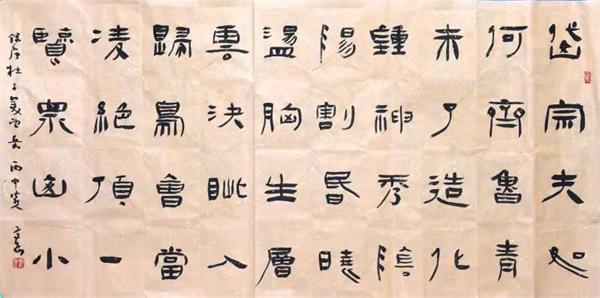 岱宗夫如
何齊魯青
未了造化
鍾神秀陰
陽割昏曉
盪胸生層
雲決眦入
歸鳥會當
凌絕頂一
覽眾山小
錄唐杜子美望岳 丙申